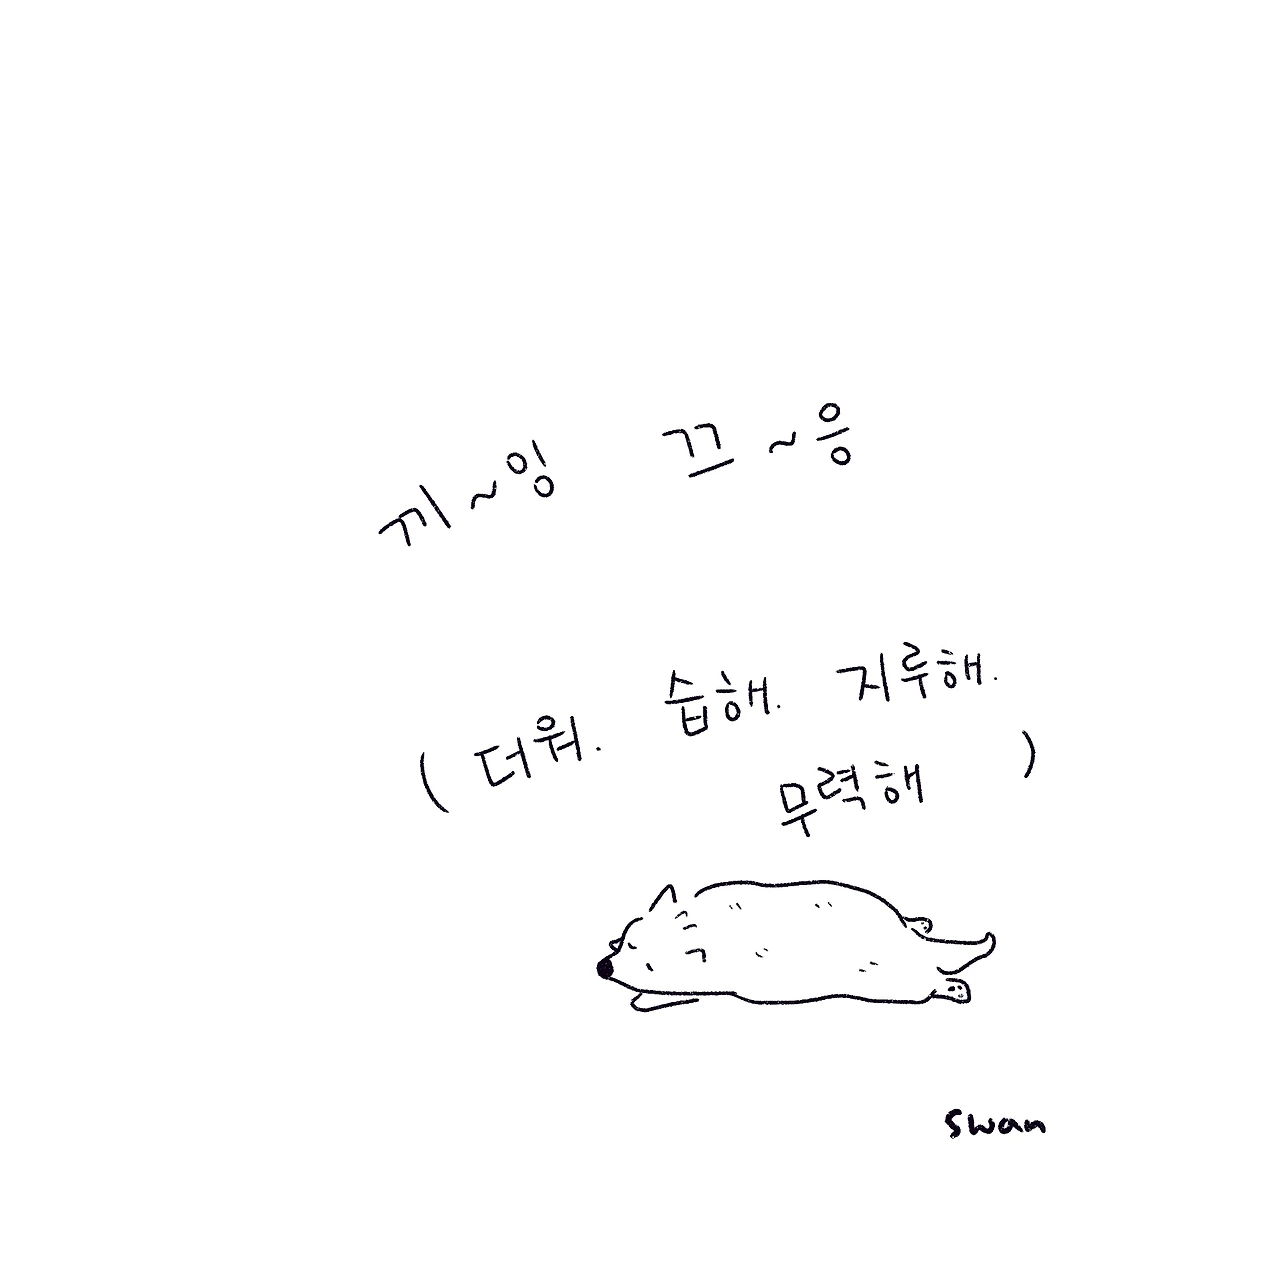 끼~잉 끄~응
(더워. 습해. 지루해.
무력해 )
swan